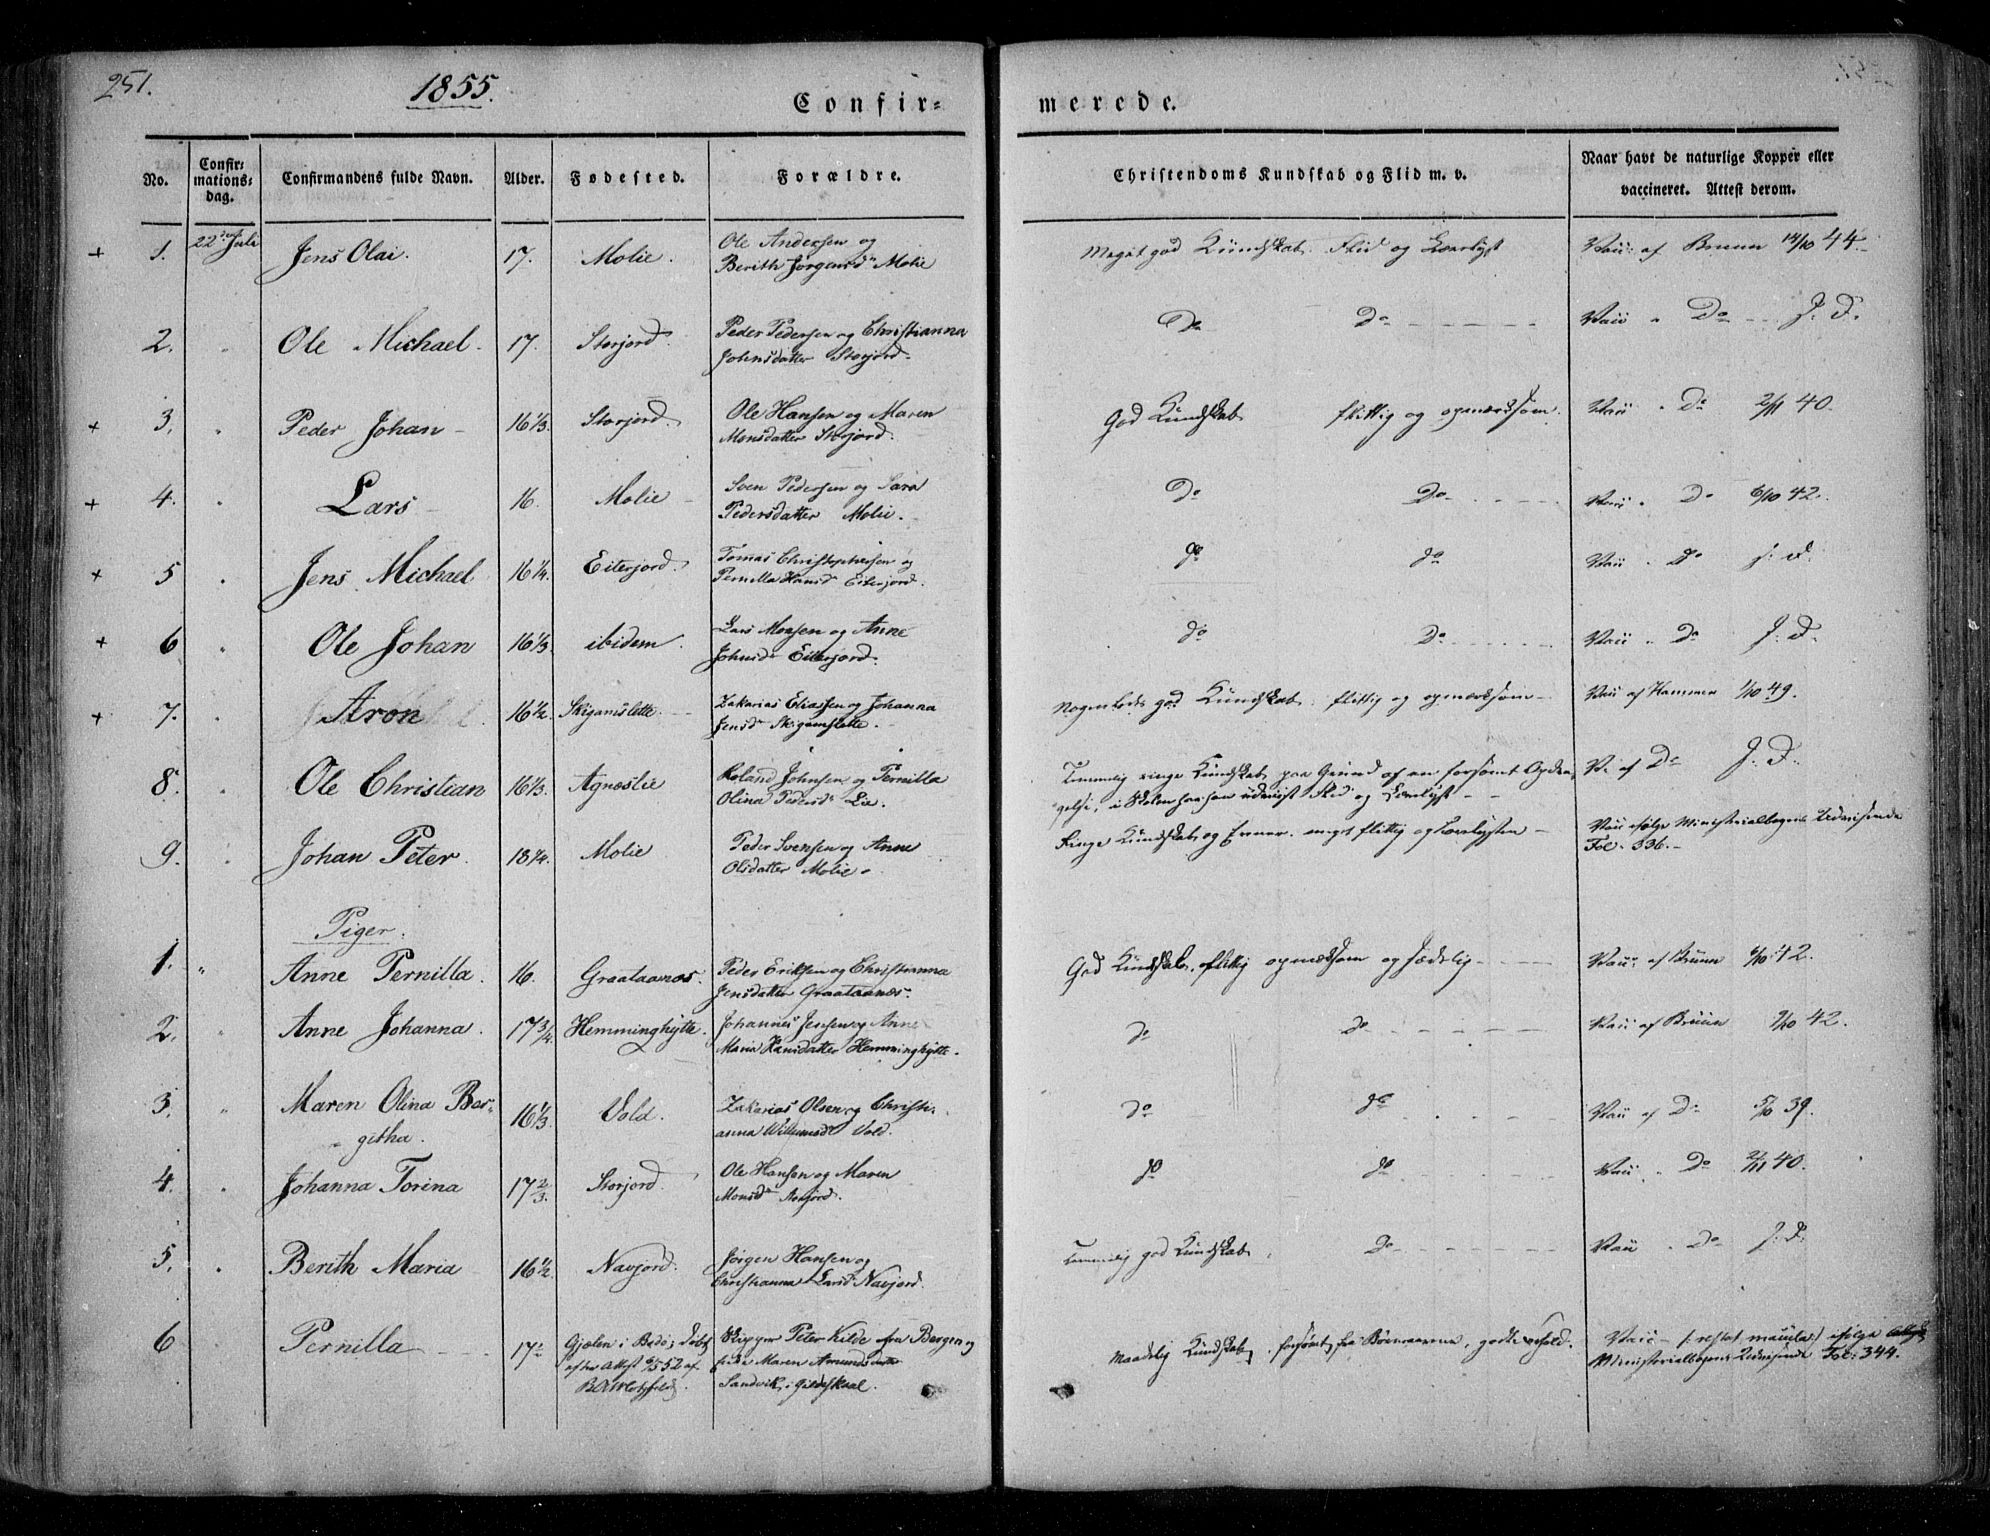 251.
1855.
Confir=
merede.
No.
Confir=
mations=
dag.
Confirmandens fulde Navn.
Alder.
Fødested.
Forældre.
Christendoms Kundskab og Flid m. v.
Naar havt de naturlige Kopper eller
vaccineret. Attest derom.
+ 1. 22de Juli Jens Olai. 17. Molie. Ole Andersen og
Berith Jørgensd. Molie
Meget god Kundskab. Flid og Lærelyst
Vacc: af Bruun 14/10 44
2. " Ole Michael. 17. Storjord. Peder Pedersen og Christianna
Johnsdatter Storjord.
Do Do
Vacc " Do J. D.
+ 3. " Peder Johan 16 1/3. Storjord. Ole Hansen og Maren
Monsdatter Storjord.
God Kundskab flittig og opmærksom.
Vacc " Do 2/11 40.
+ 4. " Lars 16. Molie Sven Pedersen og Sara
Pedersdatter Molie.
Do Do
Vacc " Do 6/10 42.
+ 5 " Jens Michael 16 1/4. Eiterjord. Tomas Christophersen og
Pernilla Hansd. Eiterjord.
do do
Vacc " do J. D.
+ 6 " Ole Johan 16 1/3 ibidem. Lars Monsen og Anne
Johnsd. Eiterjord.
do Do
Vacc " Do J. D.
+ 7. " Aron 16 1/2 Skigamslette Zakarias Eliassen og Johanna
Jensd. Skigamslette.
Nogenlede god Kundskab. flittig og opmærksom
Vacc af Hammer 1/10 49.
8. " Ole Christian 16 1/3. Agnæslie Roland Johnsen og Pernilla
Olina Pedersd. Lie.
Temmelig ringe Kundskab paa Grund af en forsømt Opdra,
gelse, i Skolen har han udviist Flid og Lærelyst
V. af Do J. D.
9. " Johan Peter. 18 1/4. Molie Peder Svensen og Anne
Olsdatter Molie.
Ringe Kundskab og Evner. meget flittig og Lærelysten
Vacc ifølge Ministerialbogens Udvisende
Fol. 336.
Piger.
1. " Anne Pernilla. 16. Graataanæs. Peder Eriksen og Christianna
Jensdatter Graataanæs.
God Kundskab, flittig opmærksom og sædelig
Vacc: af Bruun 6/10 42.
2. " Anne Johanna. 17 3/4 Hemminghytte. Johannes Jensen og Anne
Maria Hansdatter Hemminghytte.
do do
Vacc af Bruun 7/10 42.
3. " Maren Olina Ber=
githa. 16 1/3 Vold. Zakarias Olsen og Christi=
anna Willumsd. Vold.
do do
Vacc af Do 5/10 39.
4. " Johanna Torina 17 2/3. Storjord. Ole Hansen og Maren
Monsd. Storjord.
do do
Vacc " Do 2/11 40.
5. " Berith Maria 16 1/2 Navjord. Jørgen Hansen og
Christianna Larsd. Navjord.
Temmelig god Kundskab. Do
Vacc " Do J. D.
6 Pernilla 17 Gjælen i Bodø; døbt
efter Attest 9/5 52 af
Skipper Peter Kilde fra Bergen og
Maren Amundsdatter
Sandvik i Gildeskaal.
Maadelig Kundskab. forsømt fra Børneaarene, godt Forhold.
Vacc ifølge
Ministerialbogens Udvisende Fol: 344.